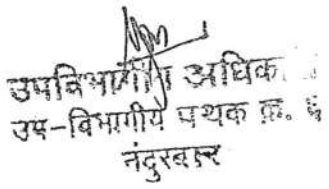 उपविभागीय अधिका
उप-विभागीय पथक क्र. ६
नंदुरबार